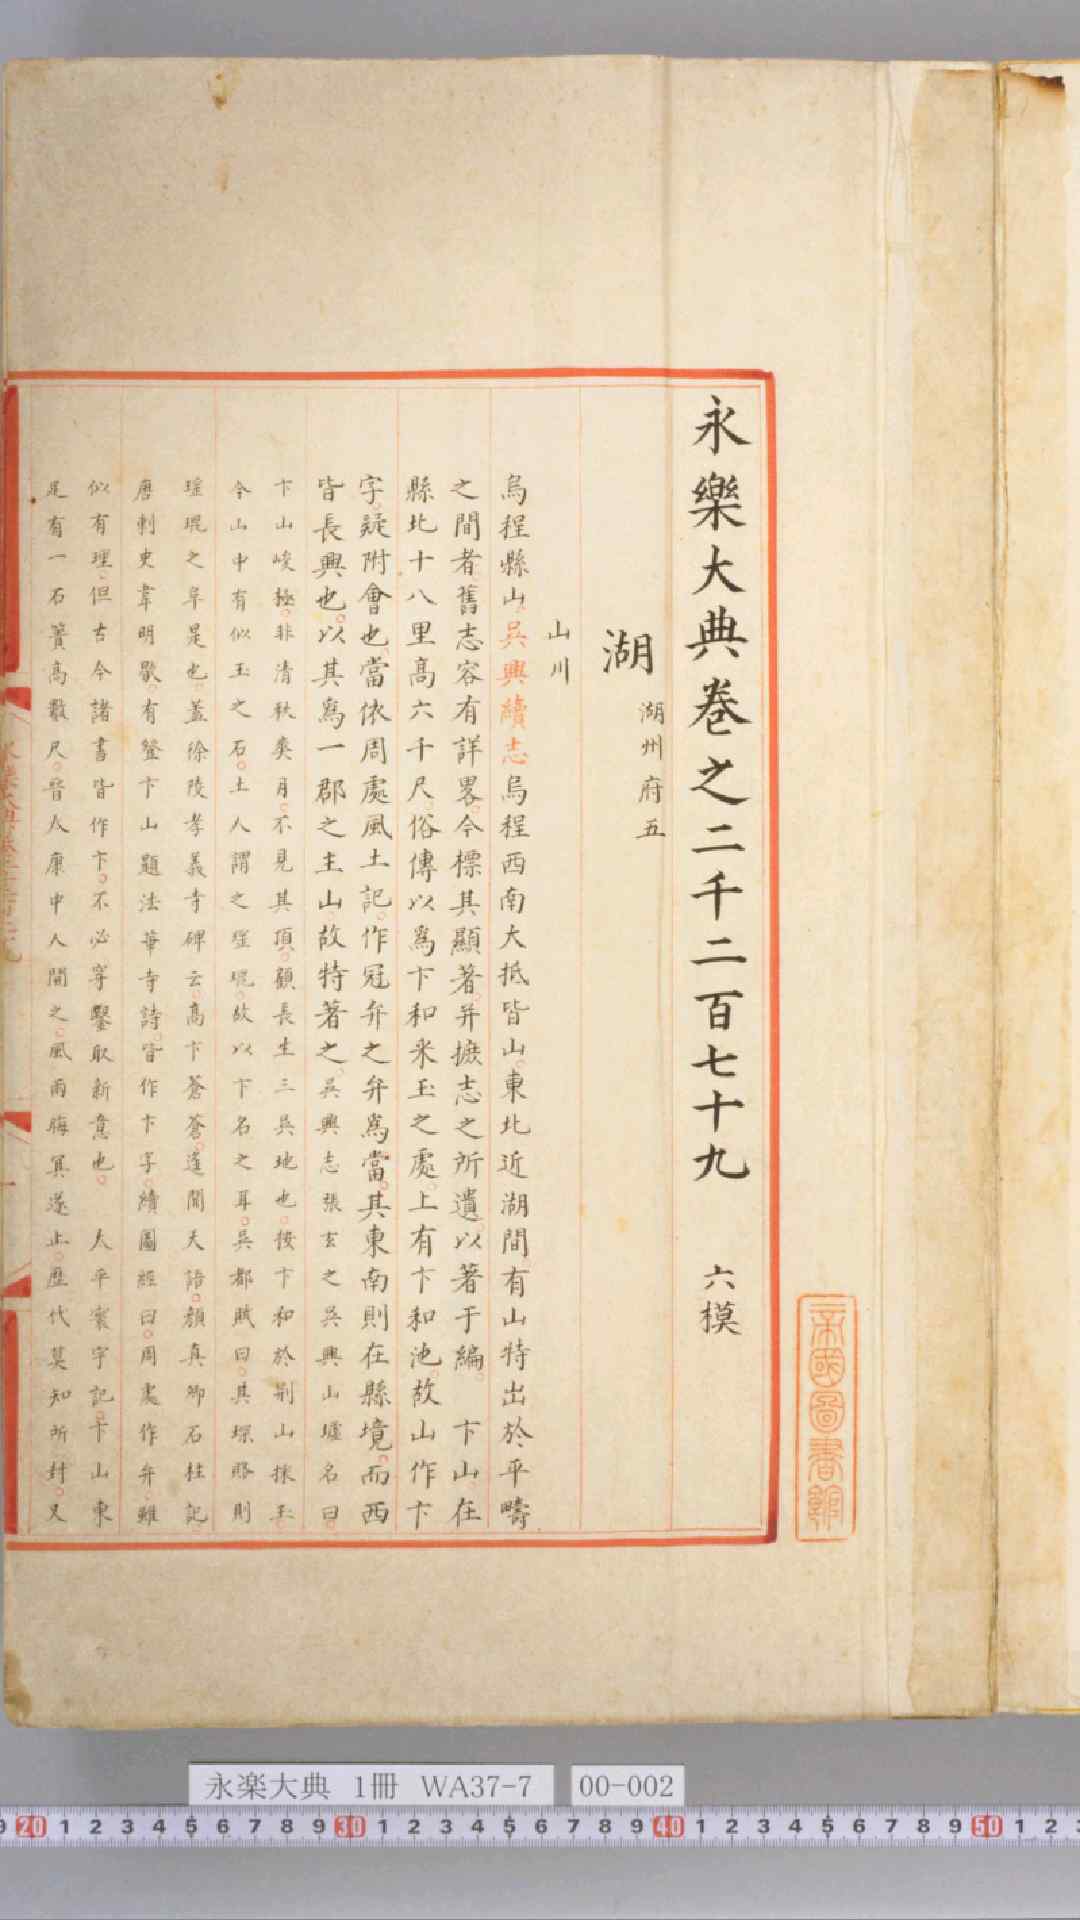 永樂大典卷之二千二百七十九 六模
湖 湖州府五
山川
烏程縣山吳興續志烏程西南大抵皆山東北近湖間有山特出於平疇
之間者舊志容有詳畧今標其顯著并摭志之所遺以著于編 卞山在
縣北十八里高六千尺俗傳以爲卞和采玉之處上有卞和池故山作卞
字疑附會也當依周處風土記作冠弁之弁爲當其東南則在縣境而西
皆長興也以其爲一郡之主山故特著之吳興志張玄之吳興山墟名曰
卞山峻極非清秋爽月不見其頂顧長生三吳地也按卞和於荆山採玉
今山中有似玉之石土人謂之瑶琨故以卞名之耳吳都賦曰其琛賂則
瑶琨之阜是也葢徐陵孝義寺碑云高卞蒼蒼遥聞天語顔真卿石柱記
唐刺史韋明敭有登卞山題法華寺詩皆作卞字續圖經曰周處作弁雖
似有理但古今諸書皆作卞不必穿鑿取新意也 太平寰宇記卞山東
足有一石簣高數尺晉人康中人開之風雨晦冥遂止歷代莫知所封又
帝國圖書館
永楽大典 1冊 WA37-7 00-002
9 20 1 2 3 4 5 6 7 8 9 30 1 2 3 4 5 6 7 8 9 40 1 2 3 4 5 6 7 8 9 50 1 2